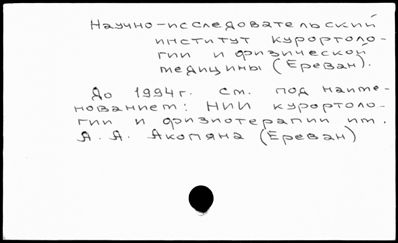 Научно-исследовательский
институт курортоло-
гии и физической
медицины (Ереван).
До 1994г. см. под наиме-
нованием: НИИ курортоло-
гии и физиотерапии им.
А. А. Акопяна (Ереван)